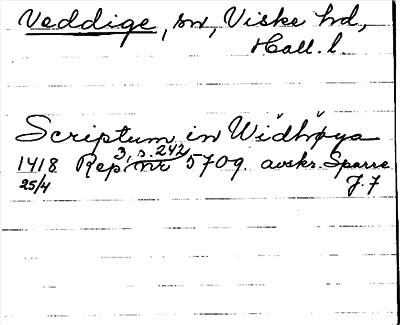 Veddige, sn, Viske hd,
Hall. l.
Scriptum in Widhøya
3, s. 242
1418 Rep. nr 5709. avskr. Sparre
25/4 J. 7